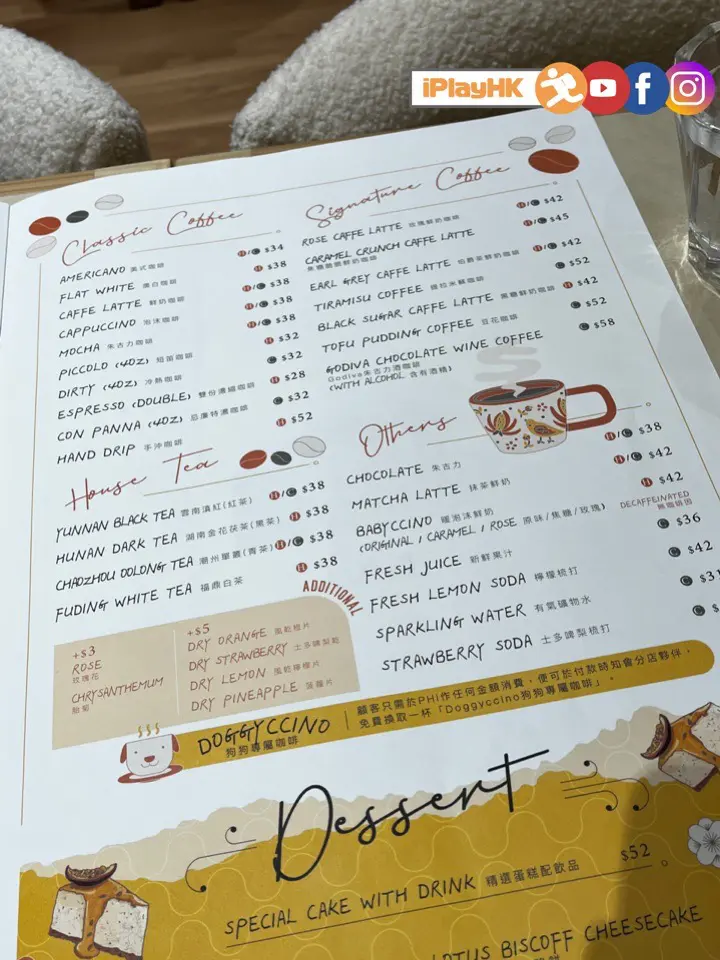 iPlayHK
Classic Coffee
AMERICANO 美式咖啡 H/C $34
FLAT WHITE 奧白咖啡 H $38
CAFFE LATTE 鮮奶咖啡 H/C $38
CAPPUCCINO 泡沫咖啡 H/C $38
MOCHA 朱古力咖啡 H/C $38
PICCOLO (4OZ) 短笛咖啡 H $32
DIRTY (4OZ) 冷熱咖啡 C $32
ESPRESSO (DOUBLE) 雙份濃縮咖啡 H $28
CON PANNA (4OZ) 忌廉特濃咖啡 C $32
HAND DRIP 手沖咖啡 H $52
House Tea
YUNNAN BLACK TEA 雲南滇紅(紅茶) H/C $38
HUNAN DARK TEA 湖南金花茯茶(黑茶) H $38
CHAOZHOU OOLONG TEA 潮州單叢(青茶) H/C $38
FUDING WHITE TEA 福鼎白茶 H $38
ADDITIONAL
+$3
ROSE
玫瑰花
CHRYSANTHEMUM
胎菊
+$5
DRY ORANGE 風乾橙片
DRY STRAWBERRY 士多啤梨乾
DRY LEMON 風乾檸檬片
DRY PINEAPPLE 菠蘿片
Signature Coffee
ROSE CAFFE LATTE 玫瑰鮮奶咖啡 H/C $42
CARAMEL CRUNCH CAFFE LATTE H/C $45
焦糖脆脆鮮奶咖啡
EARL GREY CAFFE LATTE 伯爵茶鮮奶咖啡 H/C $42
TIRAMISU COFFEE 提拉米蘇咖啡 C $52
BLACK SUGAR CAFFE LATTE 黑糖鮮奶咖啡 H $42
TOFU PUDDING COFFEE 豆花咖啡 C $52
GODIVA CHOCOLATE WINE COFFEE C $58
Godiva朱古力酒咖啡
(WITH ALCOHOL 含有酒精)
Others
CHOCOLATE 朱古力 H/C $38
MATCHA LATTE 抹茶鮮奶 H/C $42
BABYCCINO 暖泡沫鮮奶 H $42
(ORIGINAL / CARAMEL / ROSE 原味/焦糖/玫瑰) DECAFFEINATED
無咖啡因
FRESH JUICE 新鮮果汁 C $36
FRESH LEMON SODA 檸檬梳打 C $42
SPARKLING WATER 有氣礦物水 C
STRAWBERRY SODA 士多啤梨梳打 C
DOGGYCCINO
狗狗專屬咖啡
顧客只需於PHI作任何金額消費，便可於付款時知會分店夥伴，
免費換取一杯「Doggyccino狗狗專屬咖啡」。
Dessert
SPECIAL CAKE WITH DRINK 精選蛋糕配飲品 $52
LOTUS BISCOFF CHEESECAKE